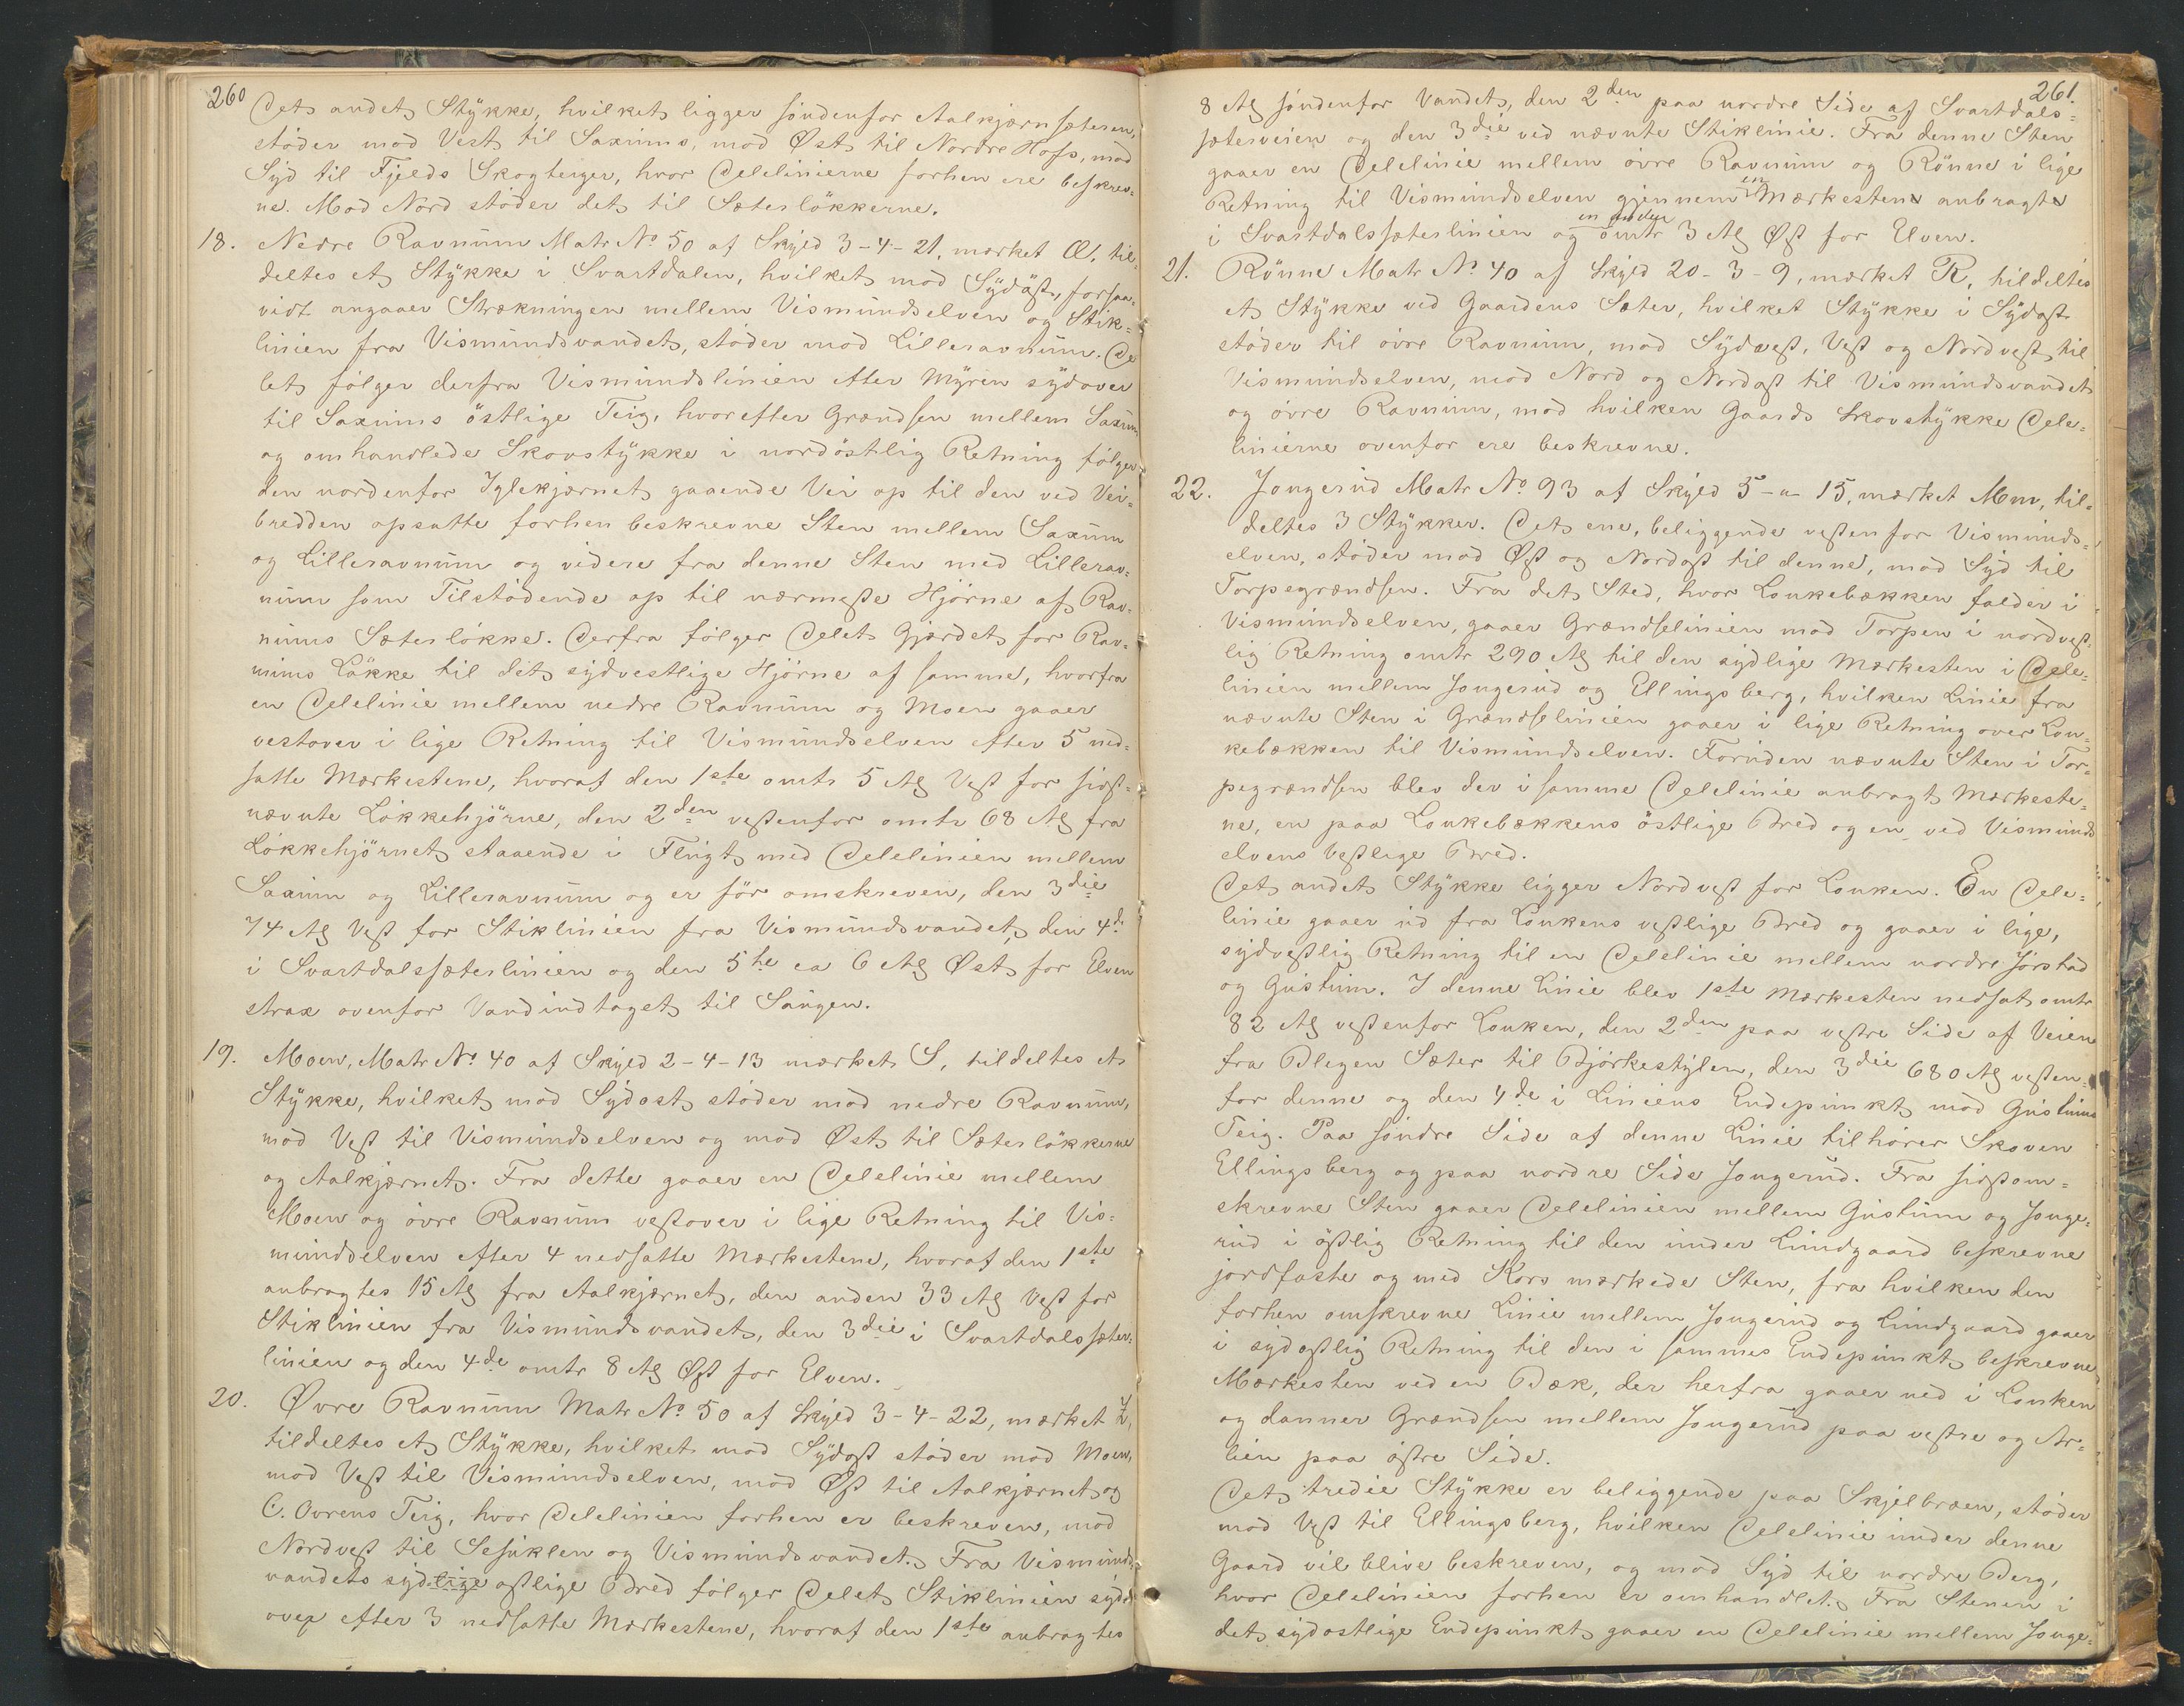 260
Det andet Stykke, hvilket ligger søndenfor Aalkjærnsæteren,
støder mod Vest til Saxums, mod Øst til Nordre Hofs, mod
Syd til Fjelds Skogteiger, hvor Delelinierne forhen ere beskrev-
ne. Mod Nord støder det til Sæterløkkerne.
18. Nedre Ravnum Matr No 50 af Skyld 3-4-21, mærket Æ, til-
deltes et Stykke i Svartdalen, hvilket mod Sydøst, forsaa-
vidt angaaer Strækningen mellem Vismundselven og Stik-
linien fra Vismundsvandet, støder mod Lilleravnum. De
let følger derfra Vismundslinien efter Myren sydover
til Saxums østlige Teig, hvorefter Grændsen mellem Saxum
og omhandlede Skovstykke i nordøstlig Retning følger
den nordenfor Iglekjærnet gaaende Vei op til den ved Vei-
bredden opsatte forhen beskrevne Sten mellem Saxum
og Lilleravnum og videre fra denne Sten med Lillerav-
num som Tilstødende op til nærmeste Hjørne af Rav-
nums Sæterløkke. Derfra følger Delet Gjærdet for Rav-
nums Løkke til det sydvestlige Hjørne af samme, hvorfra
en Delelinie mellem nedre Ravnum og Moen gaaer
vestover i lige Retning til Vismundselven efter 5 ned-
satte Mærkestene, hvoraf den 1ste omtr 5 Al Vest for sidst-
nævnte Løkkehjørne, den 2den vestenfor omtr 68 Al fra
Løkkehjørnet staaende i Flugt med Delelinien mellem
Saxum og Lilleravnum og er før omskreven, den 3die
74 Al Vest for Stiklinien fra Vismundsvandet, den 4de
i Svartdalssæterlinien og den 5te ca 6 Al Øst for Elven
strax ovenfor Vandindtaget til Saugen.
19. Moen, Matr No 40 af Skyld 2-4-13 mærket S, tildeltes et
Stykke, hvilket mod Sydost støder mod nedre Ravnum,
mod Vest til Vismundselven og mod Øst til Sæterløkkerne
og Aalkjærnet. Fra dette gaaer en Delelinie mellem
Moen og øvre Ravnum vestover i lige Retning til Vis-
mundselven efter 4 nedsatte Mærkestene, hvoraf den 1ste
anbragtes 15 Al fra Aalkjærnet, den anden 33 Al Vest for
Stiklinien fra Vismundsvandet, den 3die i Svartdalssæter-
linien og den 4de omtr 8 Al Øst for Elven.
20. Øvre Ravnum Matr No 50 af Skyld 3-4-22, mærket
tildeltes et Stykke, hvilket mod Sydost støder mod Moen,
mod Vest til Vismundselven, mod Øst til Aalkjærnet og
C. Ovrens Teig, hvor Delelinien forhen er beskreven, mod
Nordvest til Sesuklen og Vismundsvandet. Fra Vismunds
vandets sydlige ostlige Bred følger Delet Stiklinien syd
over efter 3 nedsatte Mærkestene, hvoraf den 1ste anbragtes
261.
8 Al søndenfor Vandet, den 2den paa nordre Side af Svartdals-
sæterveien og den 3die ved nævnte Stiklinie. Fra denne Sten
gaaer en Delelinie mellem øvre Ravnum og Rønne i lige
Retning til Vismundselven gjennem en Mærkesten anbragt
i Svartdalssæterlinien og en anden omtr 3 Al Øst for Elven.
21. Rønne Matr No 40 af Skyld 20-3-9, mærket R, tildeltes
et Stykke ved Gaardens Sæter, hvilket Stykke i Sydost
støder til øvre Ravnum, mod Sydvest, Vest og Nordvest til
Vismundselven, mod Nord og Nordost til Vismundsvandet
og øvre Ravnum, mod hvilken Gaards Skovstykke Dele-
linierne ovenfor ere beskrevne.
22. Jongerud Matr No 93 af Skyld 5-"-15, mærket Mm, til-
deltes 3 Stykker. Det ene, beliggende vestenfor Vismunds-
elven, støder mod Øst og Nordost til denne, mod Syd til
Torpegrændsen. Fra det Sted, hvor Loukebækken falder i
Vismundselven, gaaer Grændselinien mod Torpen i nordvest-
lig Retning omtr 290 Al til den sydlige Mærkesten i Dele-
linien mellem Jongerud og Ellingsberg, hvilken Linie fra
nævnte Sten i Grændselinien gaaer i lige Retning over Lou-
kebækken til Vismundselven. Foruden nævnte Sten i Tor-
pegrændsen blev der i samme Delelinie anbragt Mærkeste-
ne, en paa Loukebækkens østlige Bred og en ved Vismunds
elvens vestlige Bred.
Det andet Stykke ligger Nordvest for Louken. En Dele-
linie gaaer ud fra Loukens vestlige Bred og gaaer i lige,
sydvestlig Retning til en Delelinie mellem nordre Jørstad
og Gustum. I denne Linie blev 1ste Mærkesten nedsat omtr
82 Al vestenfor Louken, den 2den paa vestre Side af Veien
fra Blegen Sæter til Bjørkestylen, den 3die 680 Al vesten-
for denne og den 4de i Liniens Endepunkt mod Gustums
Teig. Paa søndre Side af denne Linie tilhører Skoven
Ellingsberg og paa nordre Side Jongerud. Fra sidstom-
skrevne Sten gaaer Delelinien mellem Gustum og Jonge-
rud i østlig Retning til den under Lundgaard beskrevne
jordfaste og med Kors mærkede Sten, fra hvilken den
forhen omskrevne Linie mellem Jongerud og Lundgaard gaaer
i sydostlig Retning til den i sammes Endepunkt beskrevne
Mærkesten ved en Bæk, der herfra gaaer ned i Louken
og danner Grændsen mellem Jongerud paa vestre og Ar-
lien paa østre Side.
Det tredie Stykke er beliggende paa Skjelbræen, støder
mod Vest til Ellingsberg, hvilken Delelinie under denne
Gaard vil blive beskreven, og mod Syd til nordre Berg,
hvor Delelinien forhen er omhandlet. Fra Stenen i
det sydostlige Endepunkt gaaer en Delelinie mellem Jonge-